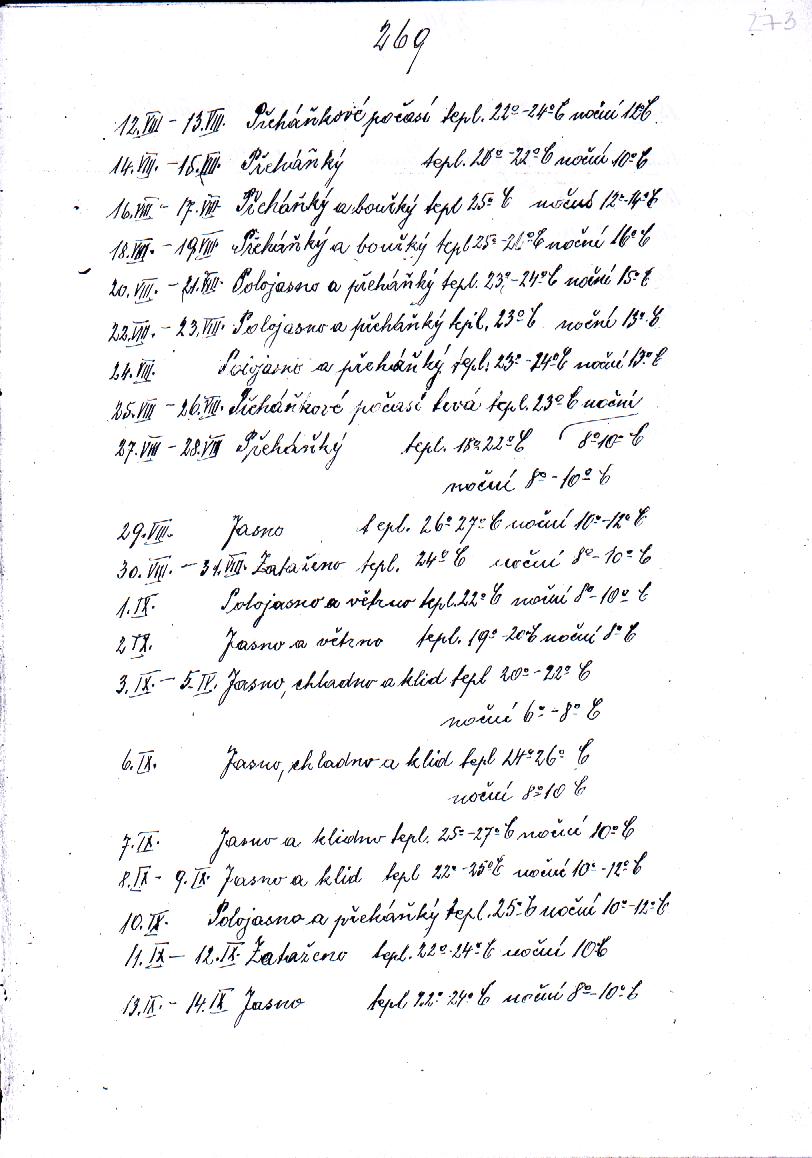 273
269
12.VIII - 13.VIII. Přeháňkové počasí tepl. 22° - 24°C noční 12°C
14.VIII. - 15.VIII. Přeháňký tepl. 20° - 22°C noční 10°C
16.VIII - 17.VIII Přeháňký a bouřký tepl 25°C noční 12° - 14°C
18.VIII. - 19.VIII Přeháňký a bouřký tepl 25° - 26°C noční 16°C
20.VIII. - 21.VIII. Polojasno a přeháňký tepl. 23° - 24°C noční 15°C
22.VIII. - 23.VIII Polojasno a přeháňký tepl. 23°C noční 13°C
24.VIII. Polojasno a přeháňký tepl. 23° - 24°C noční 13°C
25.VIII - 26.VIII. Přeháňkové počasí tepl. 23°C noční
27.VIII - 28.VIII Přeháňký tepl. 18° 22°C 8° 10°C
noční 8° - 10°C
29.VIII. Jasno tepl. 26° 27°C noční 10° - 12°C
30.VIII. - 31.VIII. Zataženo tepl. 24°C noční 8° - 10°C
1.IX. Polojasno a větrno tepl. 22°C noční 8° - 10°C
2 IX. Jasno a větrno tepl. 19° - 20°C noční 8°C
3.IX. - 5.IV. Jasno, chladno a klid tepl 20° - 22°C
noční 6° - 8°C
6.IX. Jasno, chladno a klid tepl 24° 26°C
noční 8° 10 C
7.IX. Jasno a klidno tepl. 25° - 27°C noční 10°C
8.IX - 9.IX Jasno a klid tepl 22° - 25°C noční 10° - 12°C
10.IX. Polojasno a přeháňký tepl. 25°C noční 10° - 12°C
11.IX - 12.IX Zataženo tepl. 22° - 24°C noční 10°C
13.IX. - 14.IX Jasno tepl 22° - 24°C noční 8° - 10°C